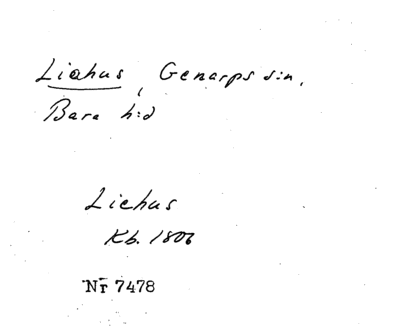 Liahus, Genarps s:n,
Bara h:d
Liehus
Kb. 1806
Nr 7478